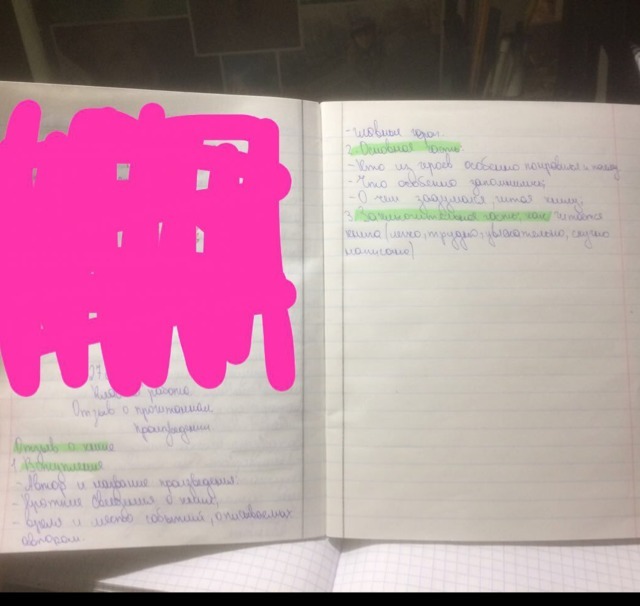 27
работа
Отзыв о прочитанном
произведении
Отзыв о книге
1. Вступление
- Автор и название произведения.
- Краткие сведения о книге;
- время и место событий, описываемых
автором.
- главный герой.
2. Основная часть.
- Кто из героев особенно понравился и почему
- Что особенно запомнилось;
- О чем задумался, читая книгу;
3. Заключительная часть, как читается
книга (легко, трудно, увлекательно, скучно
написано)